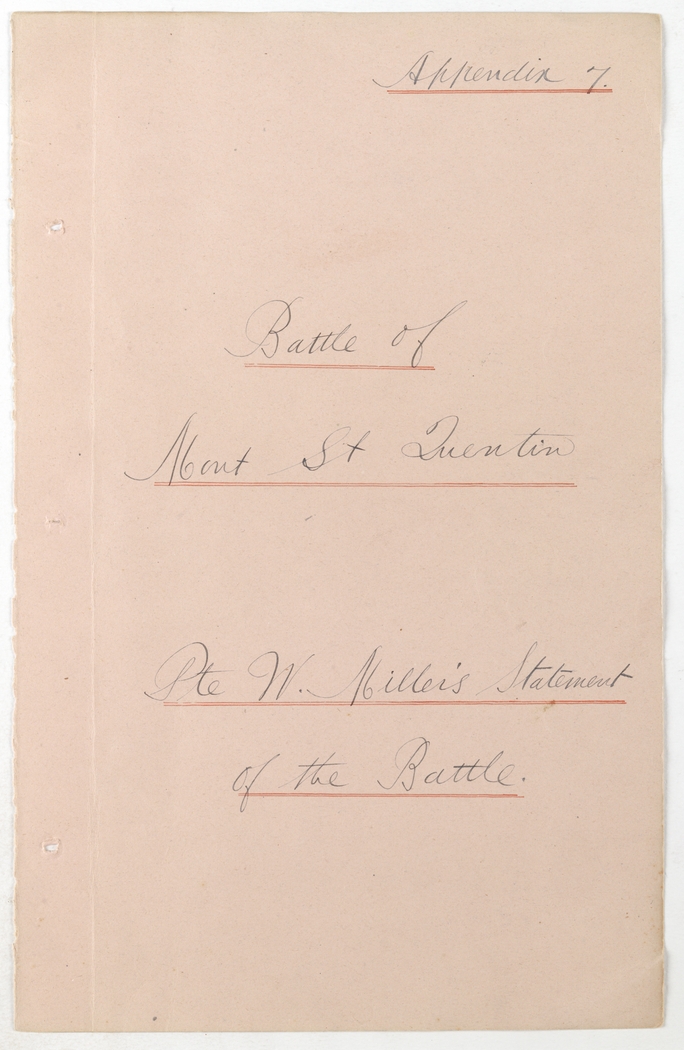 Appendix 7.
Battle of
Mont St Quentin
Pte W. Miller's Statement
of the Battle.